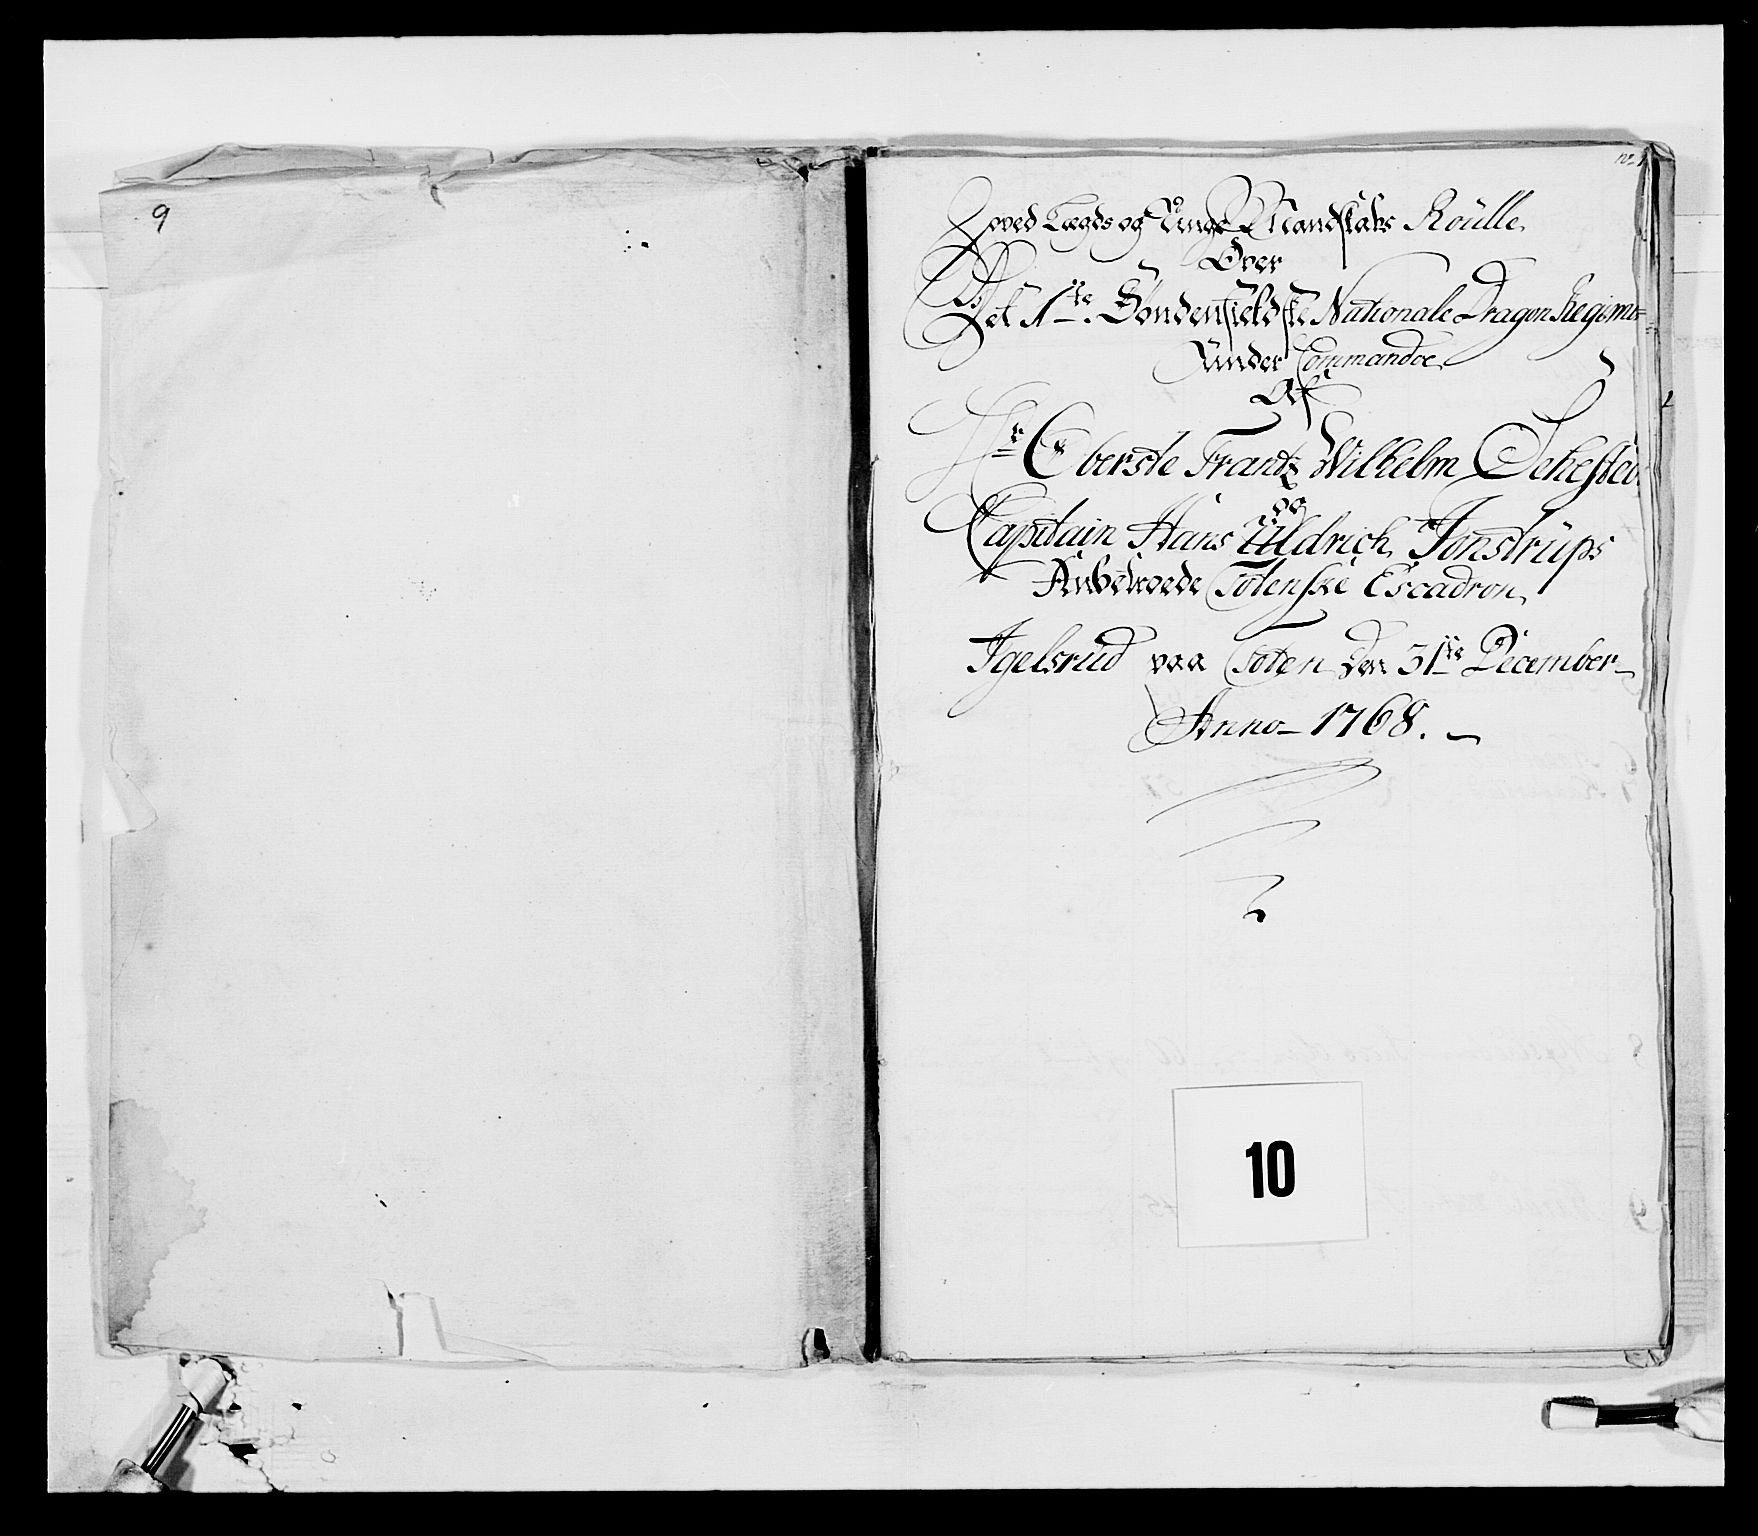 9
No 1
Hoved Lægds og Unge Mandskabs Roülle
Over
Det 1ste Søndenfieldske Nationale Dragon Regimt=
Ünder Commandoe
Af
Hr Oberste Frantz Wilhelm Sehested
og
Capitain Hans Üldrich Jonstrüps
Anbetroede Totenske Escadron
Igelsrud paa Toten den 31te December
Anno 1768.
10